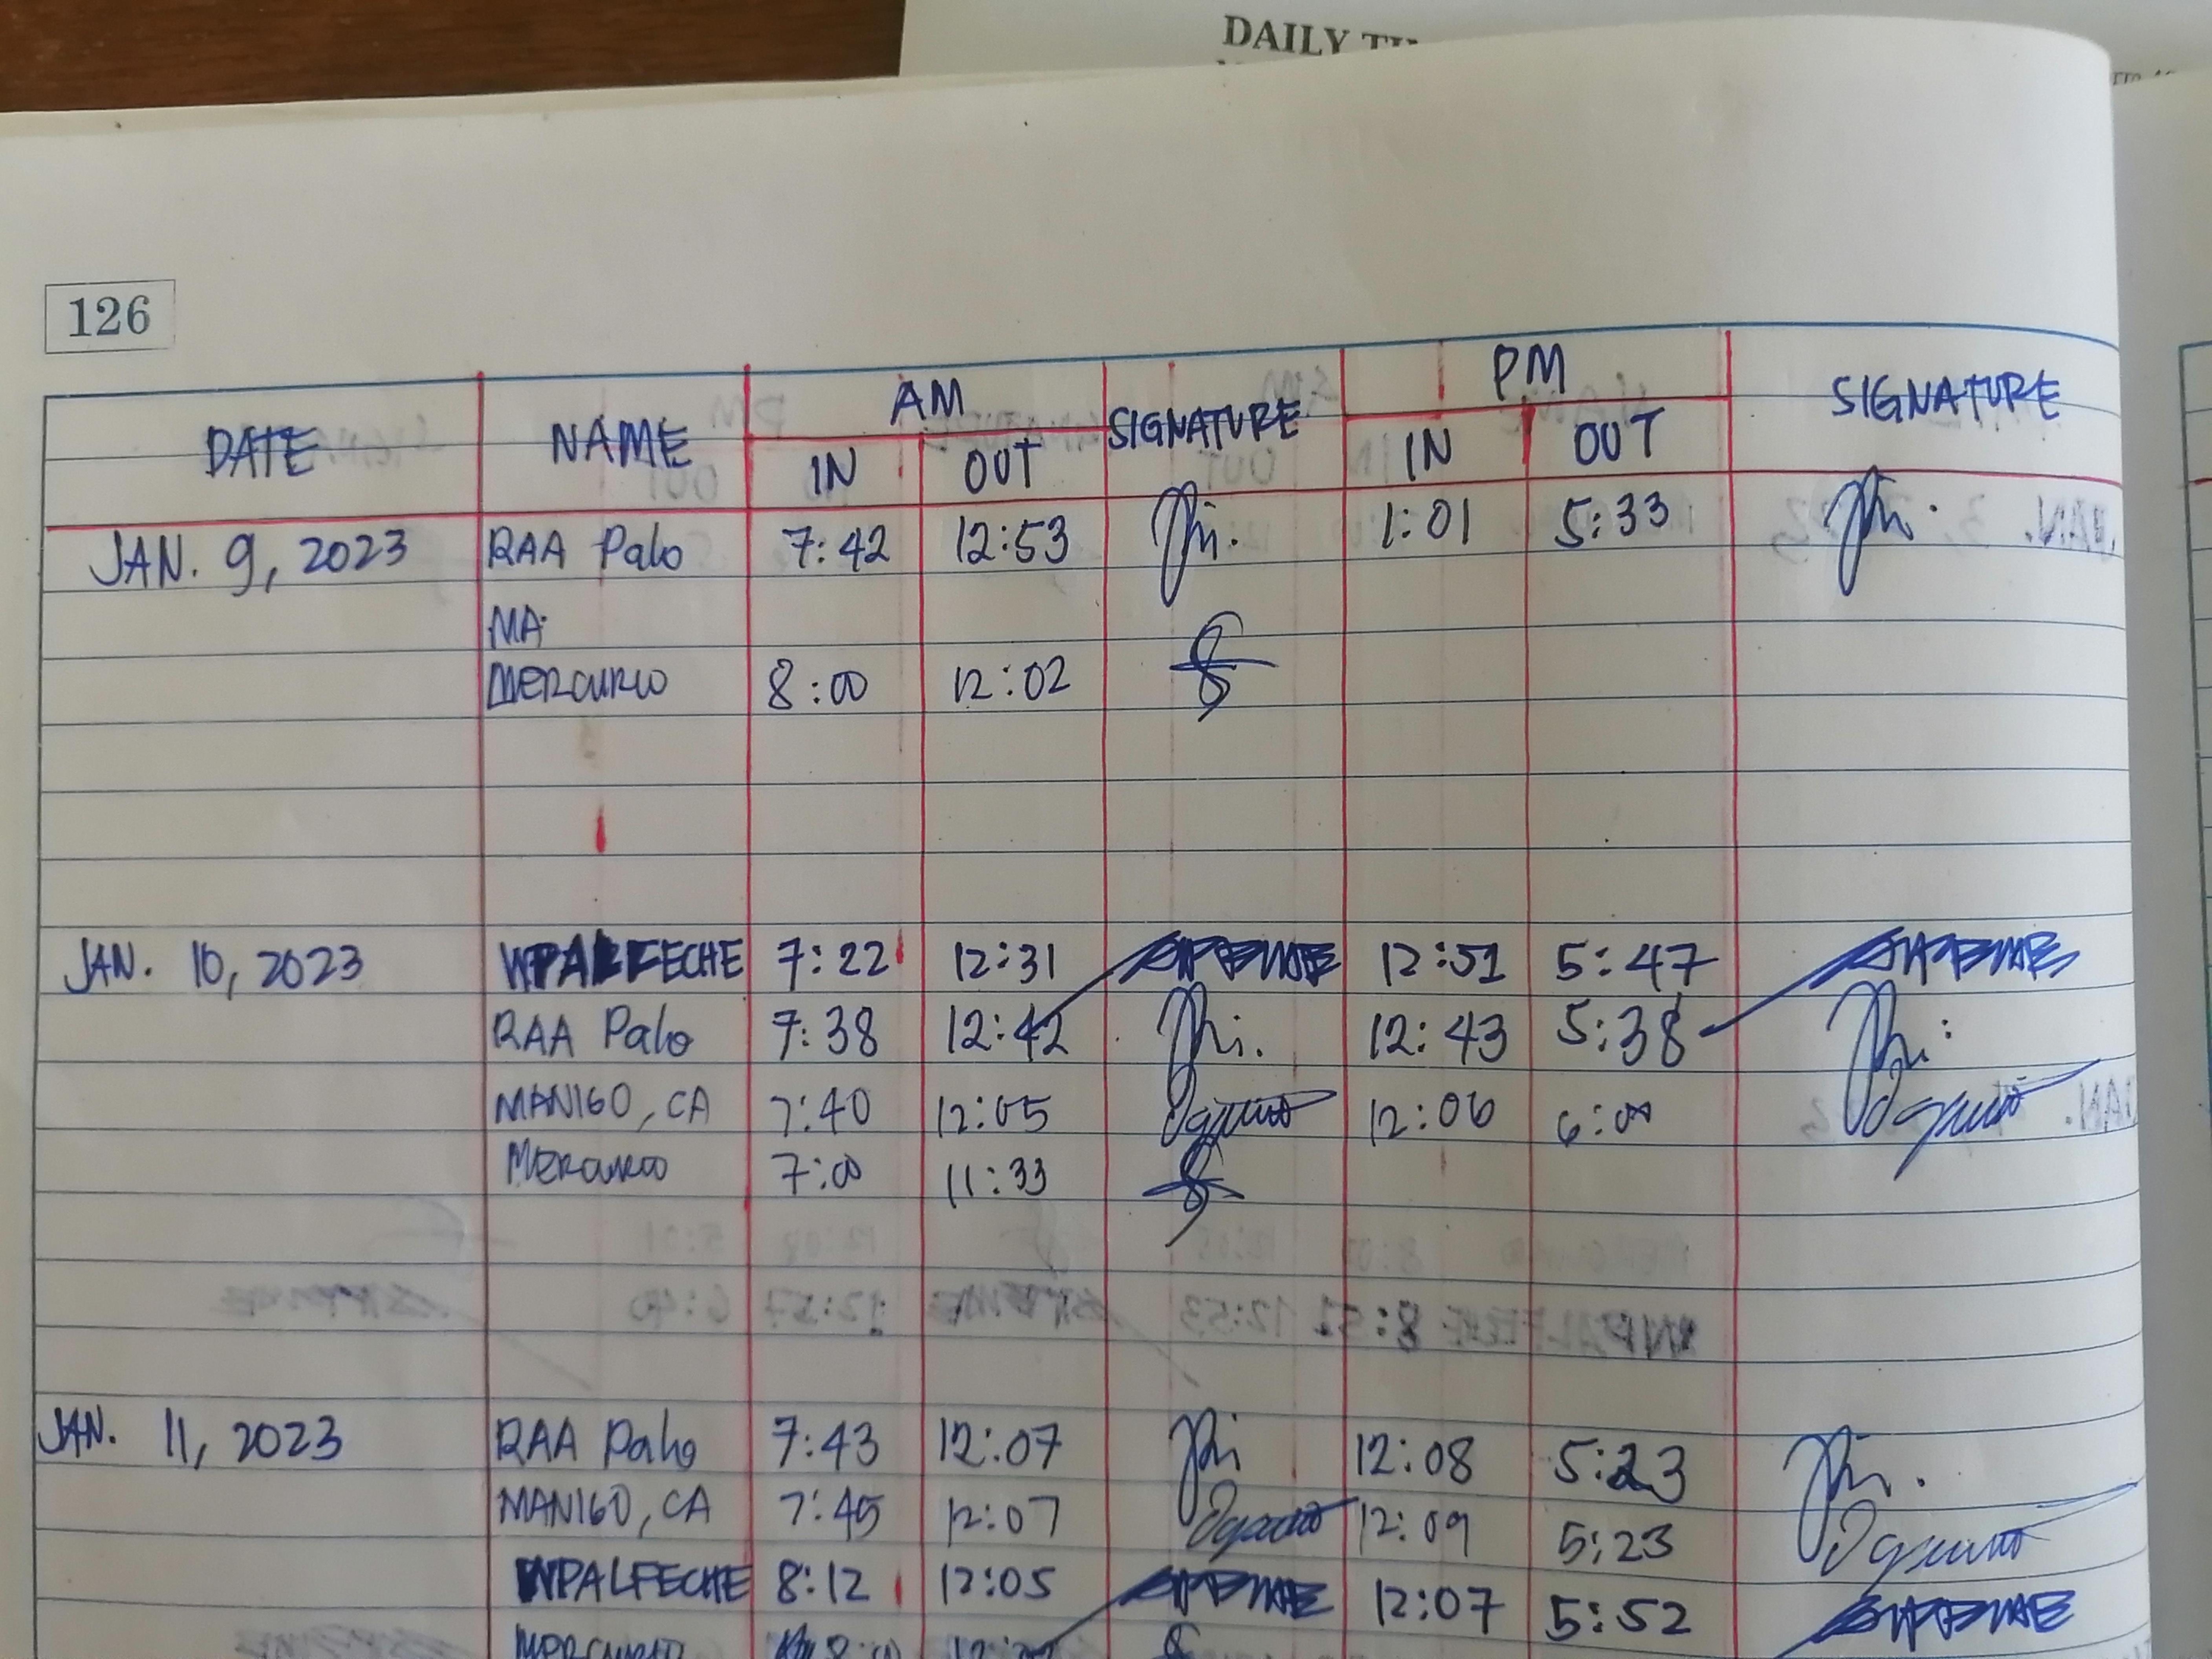 DAILY
126
DATE NAME AM SIGNATURE PM SIGNATURE
IN OUT IN OUT
JAN. 9, 2023 RAA Palo 7:42 12:53 1:01 5:33
MA.
MERCURIO 8:00 12:02
JAN. 10, 2023 WPALFECHE 7:22 12:31 12:51 5:47
RAA Palo 7:38 12:42 12:43 5:38
MANIGO, CA 7:40 12:05 12:06 6:00
MERCURIO 7:00 11:33
JAN. 11, 2023 RAA Palo 7:43 12:07 12:08 5:23
MANIGO, CA 7:45 12:07 12:09 5:23
WPALFECHE 8:12 12:05 12:07 5:52
MERCURIO 8:00